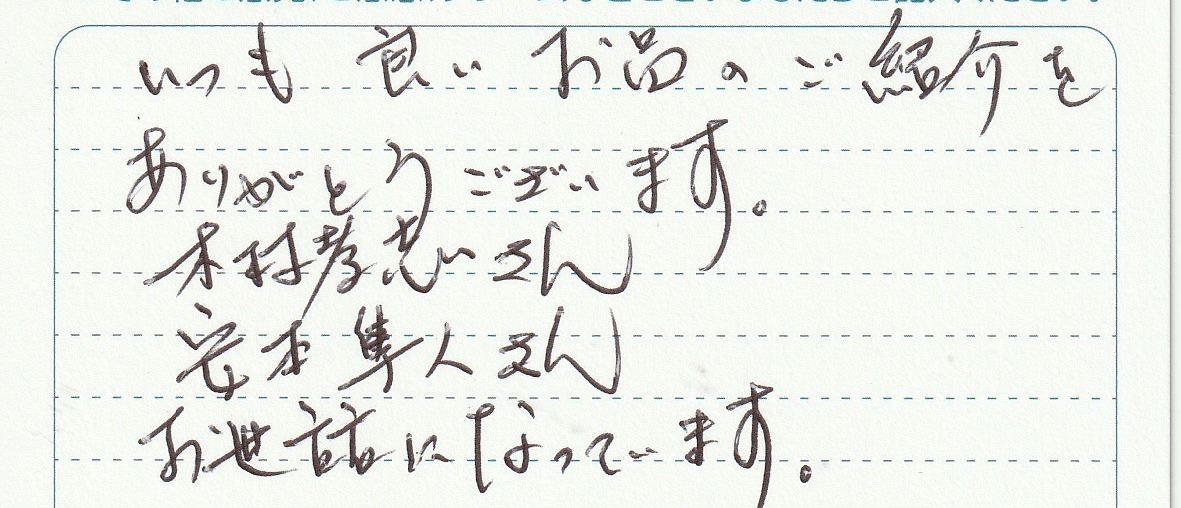 いつも 良い お品の ご紹介を
ありがとうございます。
木村孝志さん
安本隼人さん
お世話になっています。